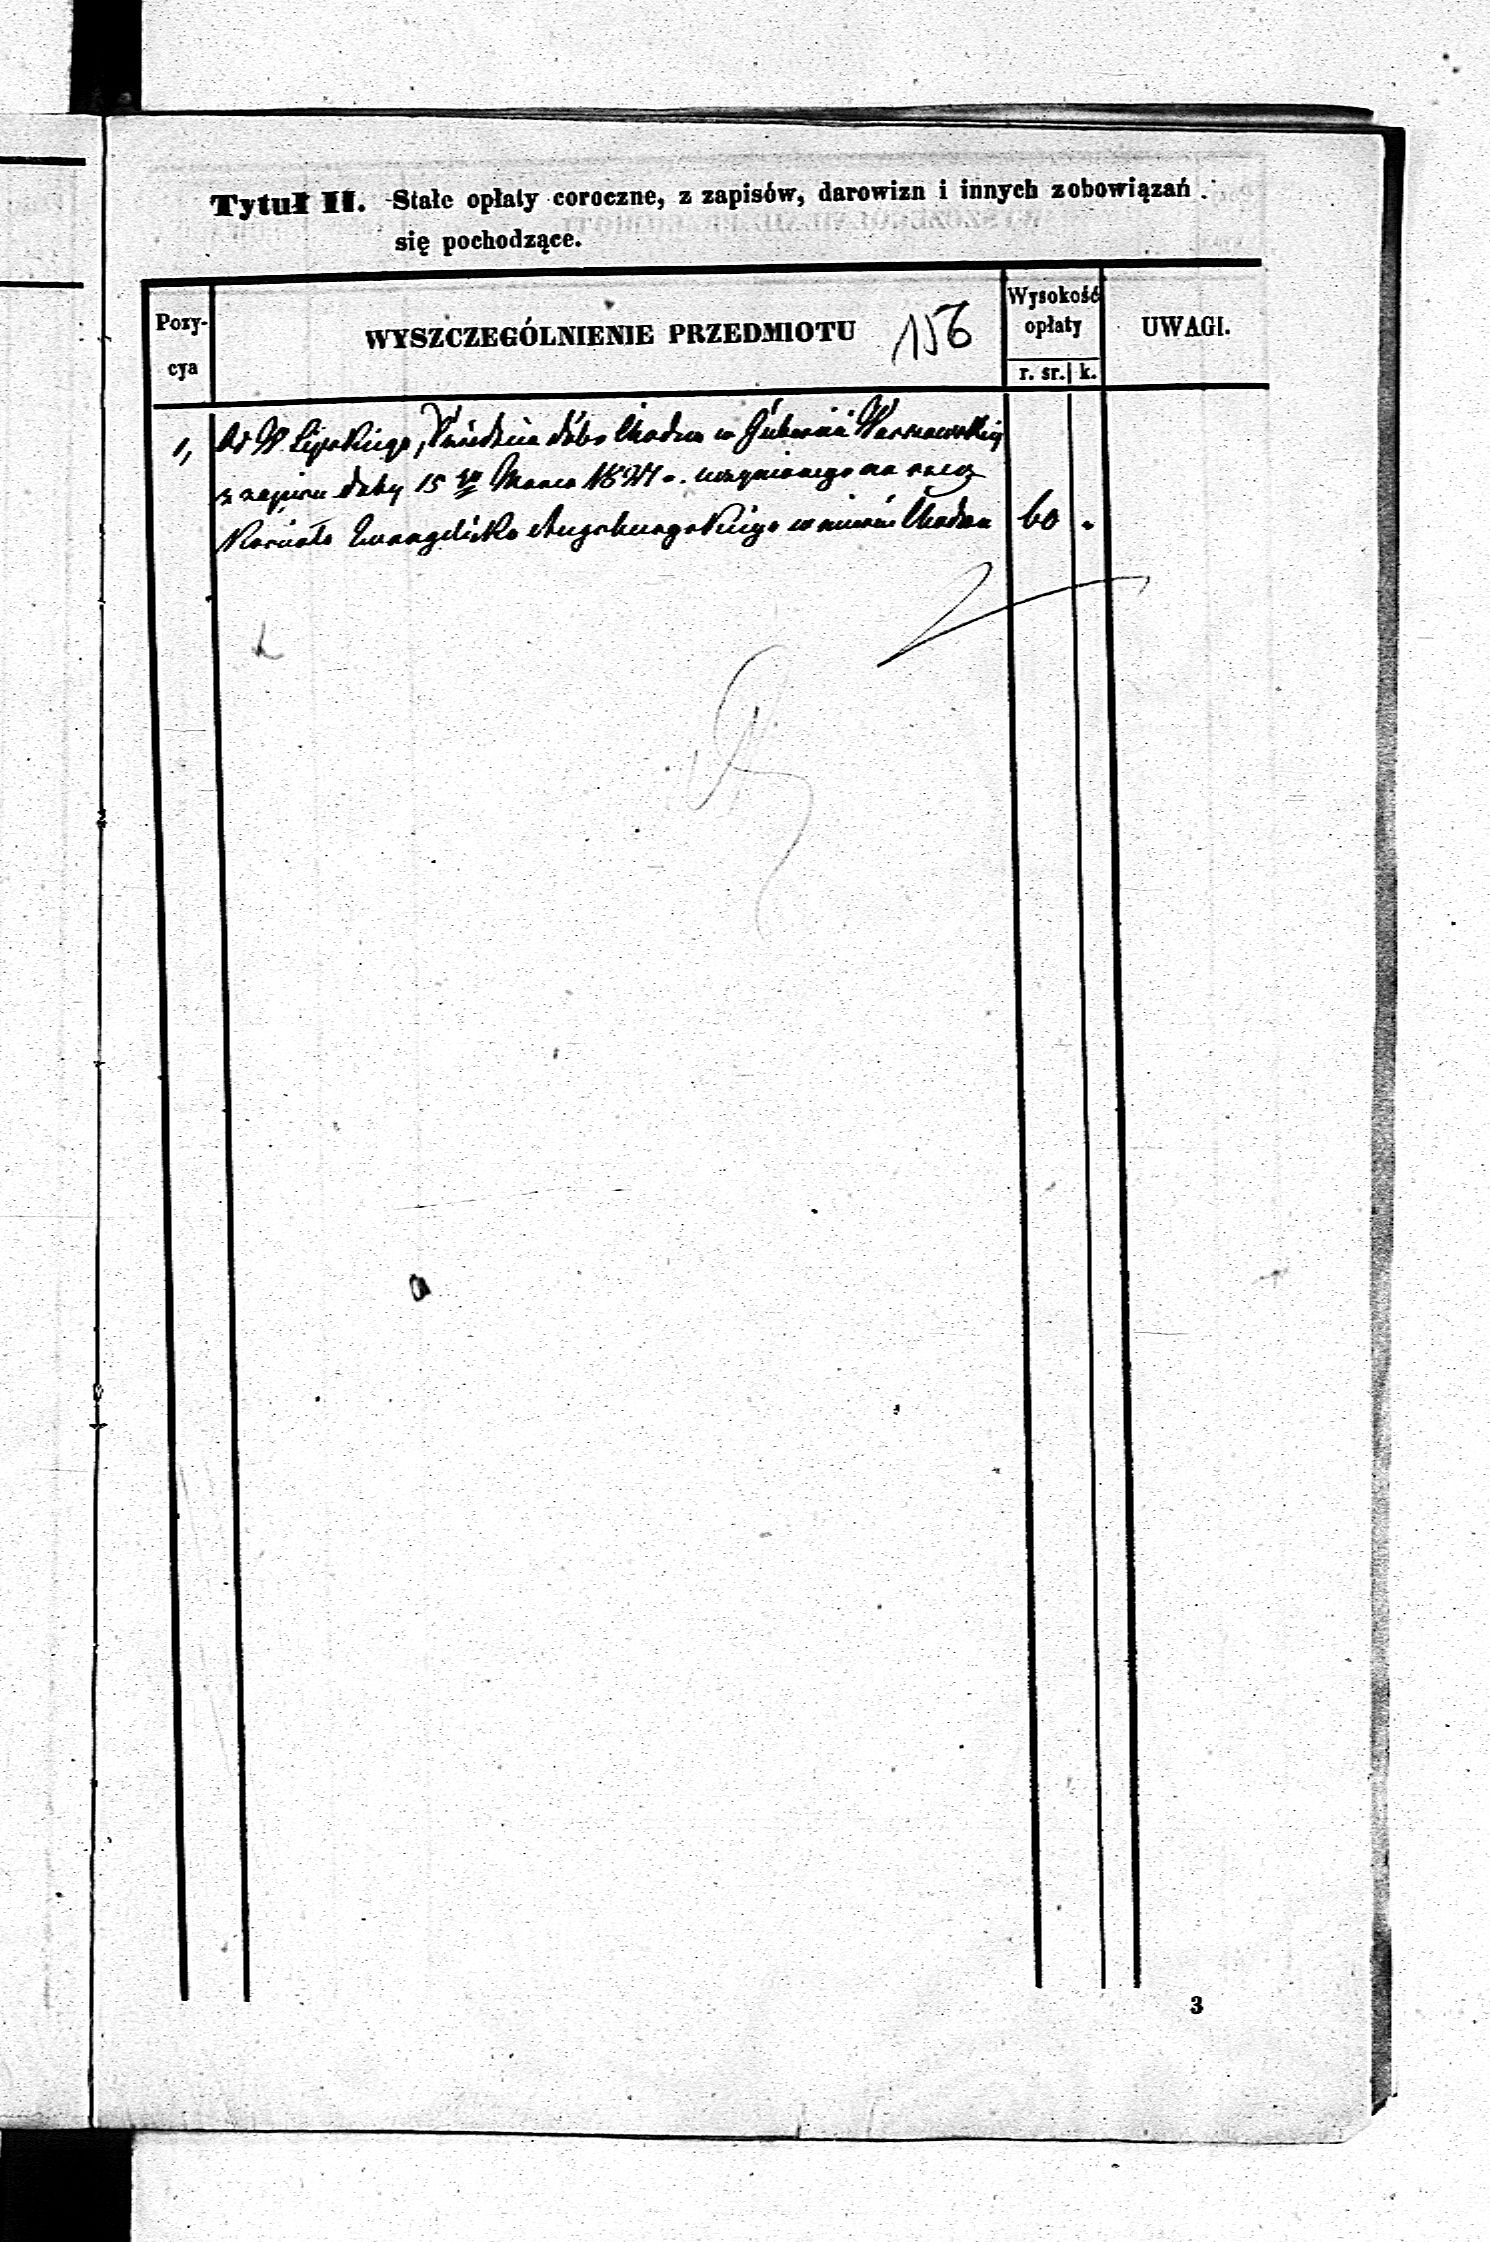 Tytuł II. Stałe opłaty coroczne, z zapisów, darowizn i innych zobowiązań
się pochodzące.
Pozy-
cya
WYSZCZEGÓLNIENIE PRZEDMIOTU
156
Wysokość
opłaty
r. sr. k.
UWAGI.
1, Od W Lipskiego, Dziedzica dóbr Chodcza w Gubernii Warszawskiej
z zapisu daty 15 Marca uczynionego na rzecz
Kościoła Ewangelicko Augsburgskiego w mieście Chodcza 60 "
3